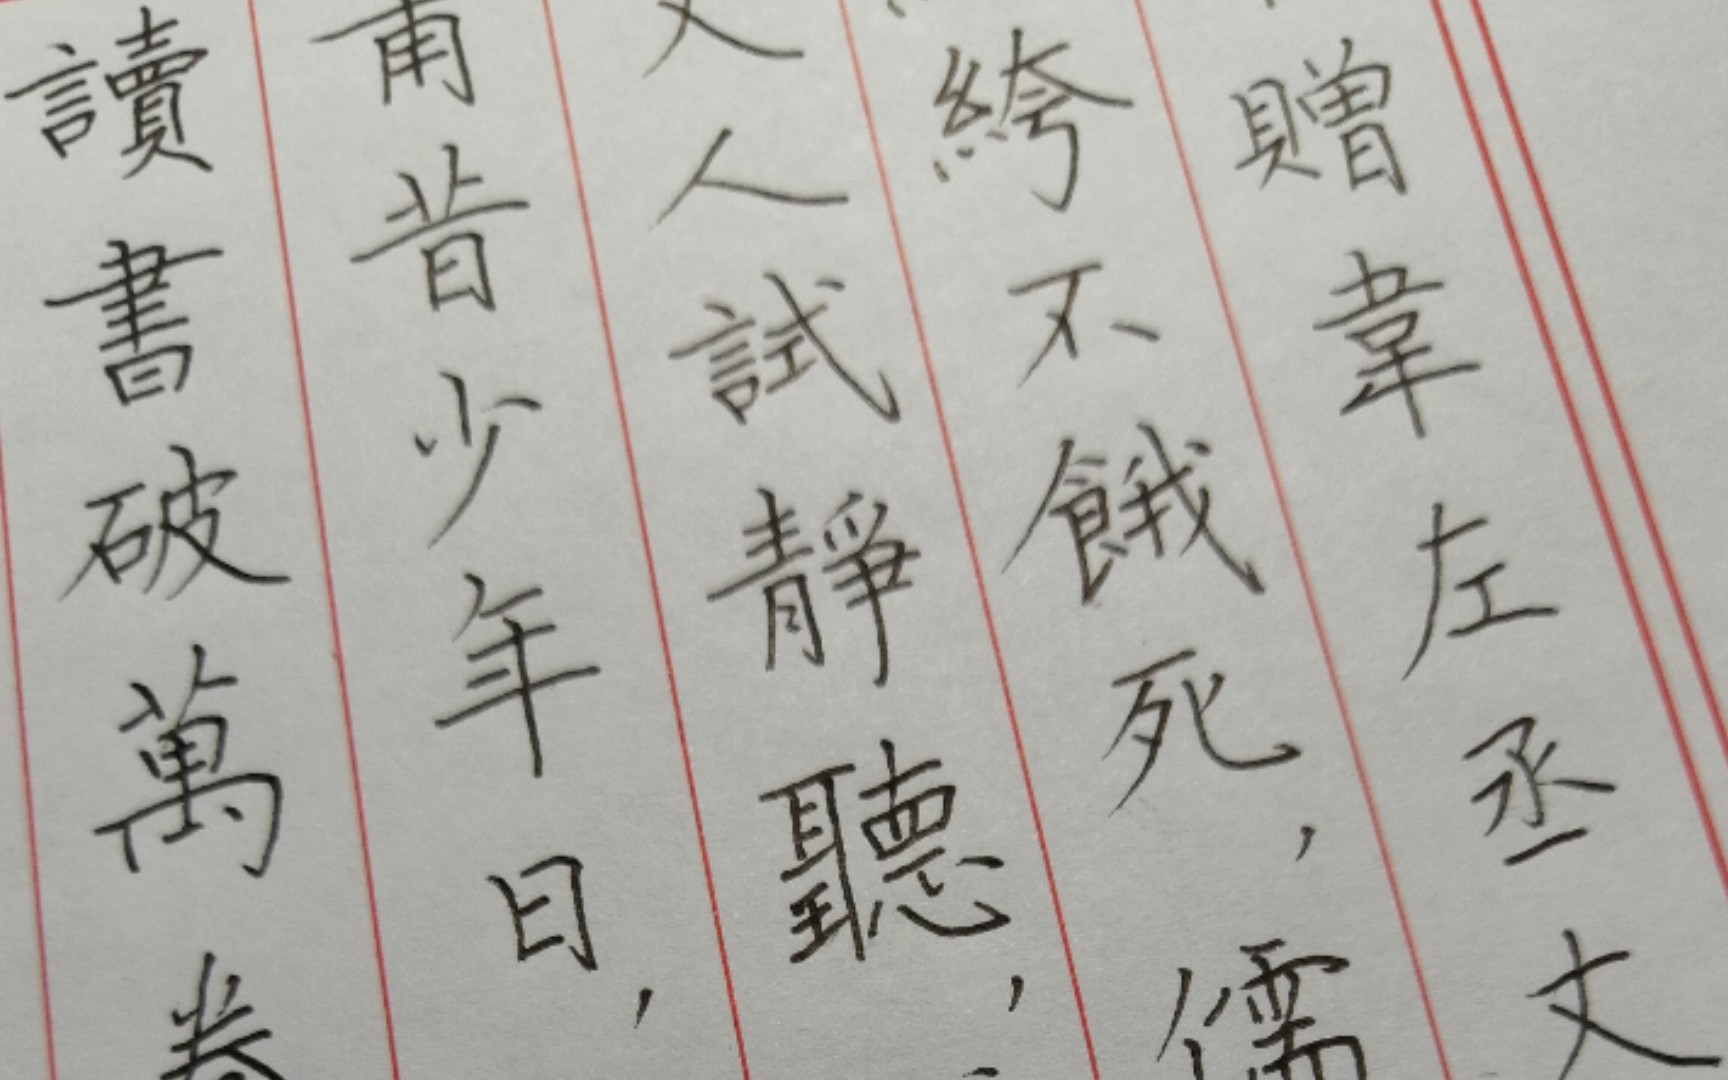 贈韋左丞丈
絝不餓死，儒
丈人試靜聽，
甫昔少年日，
讀書破萬卷